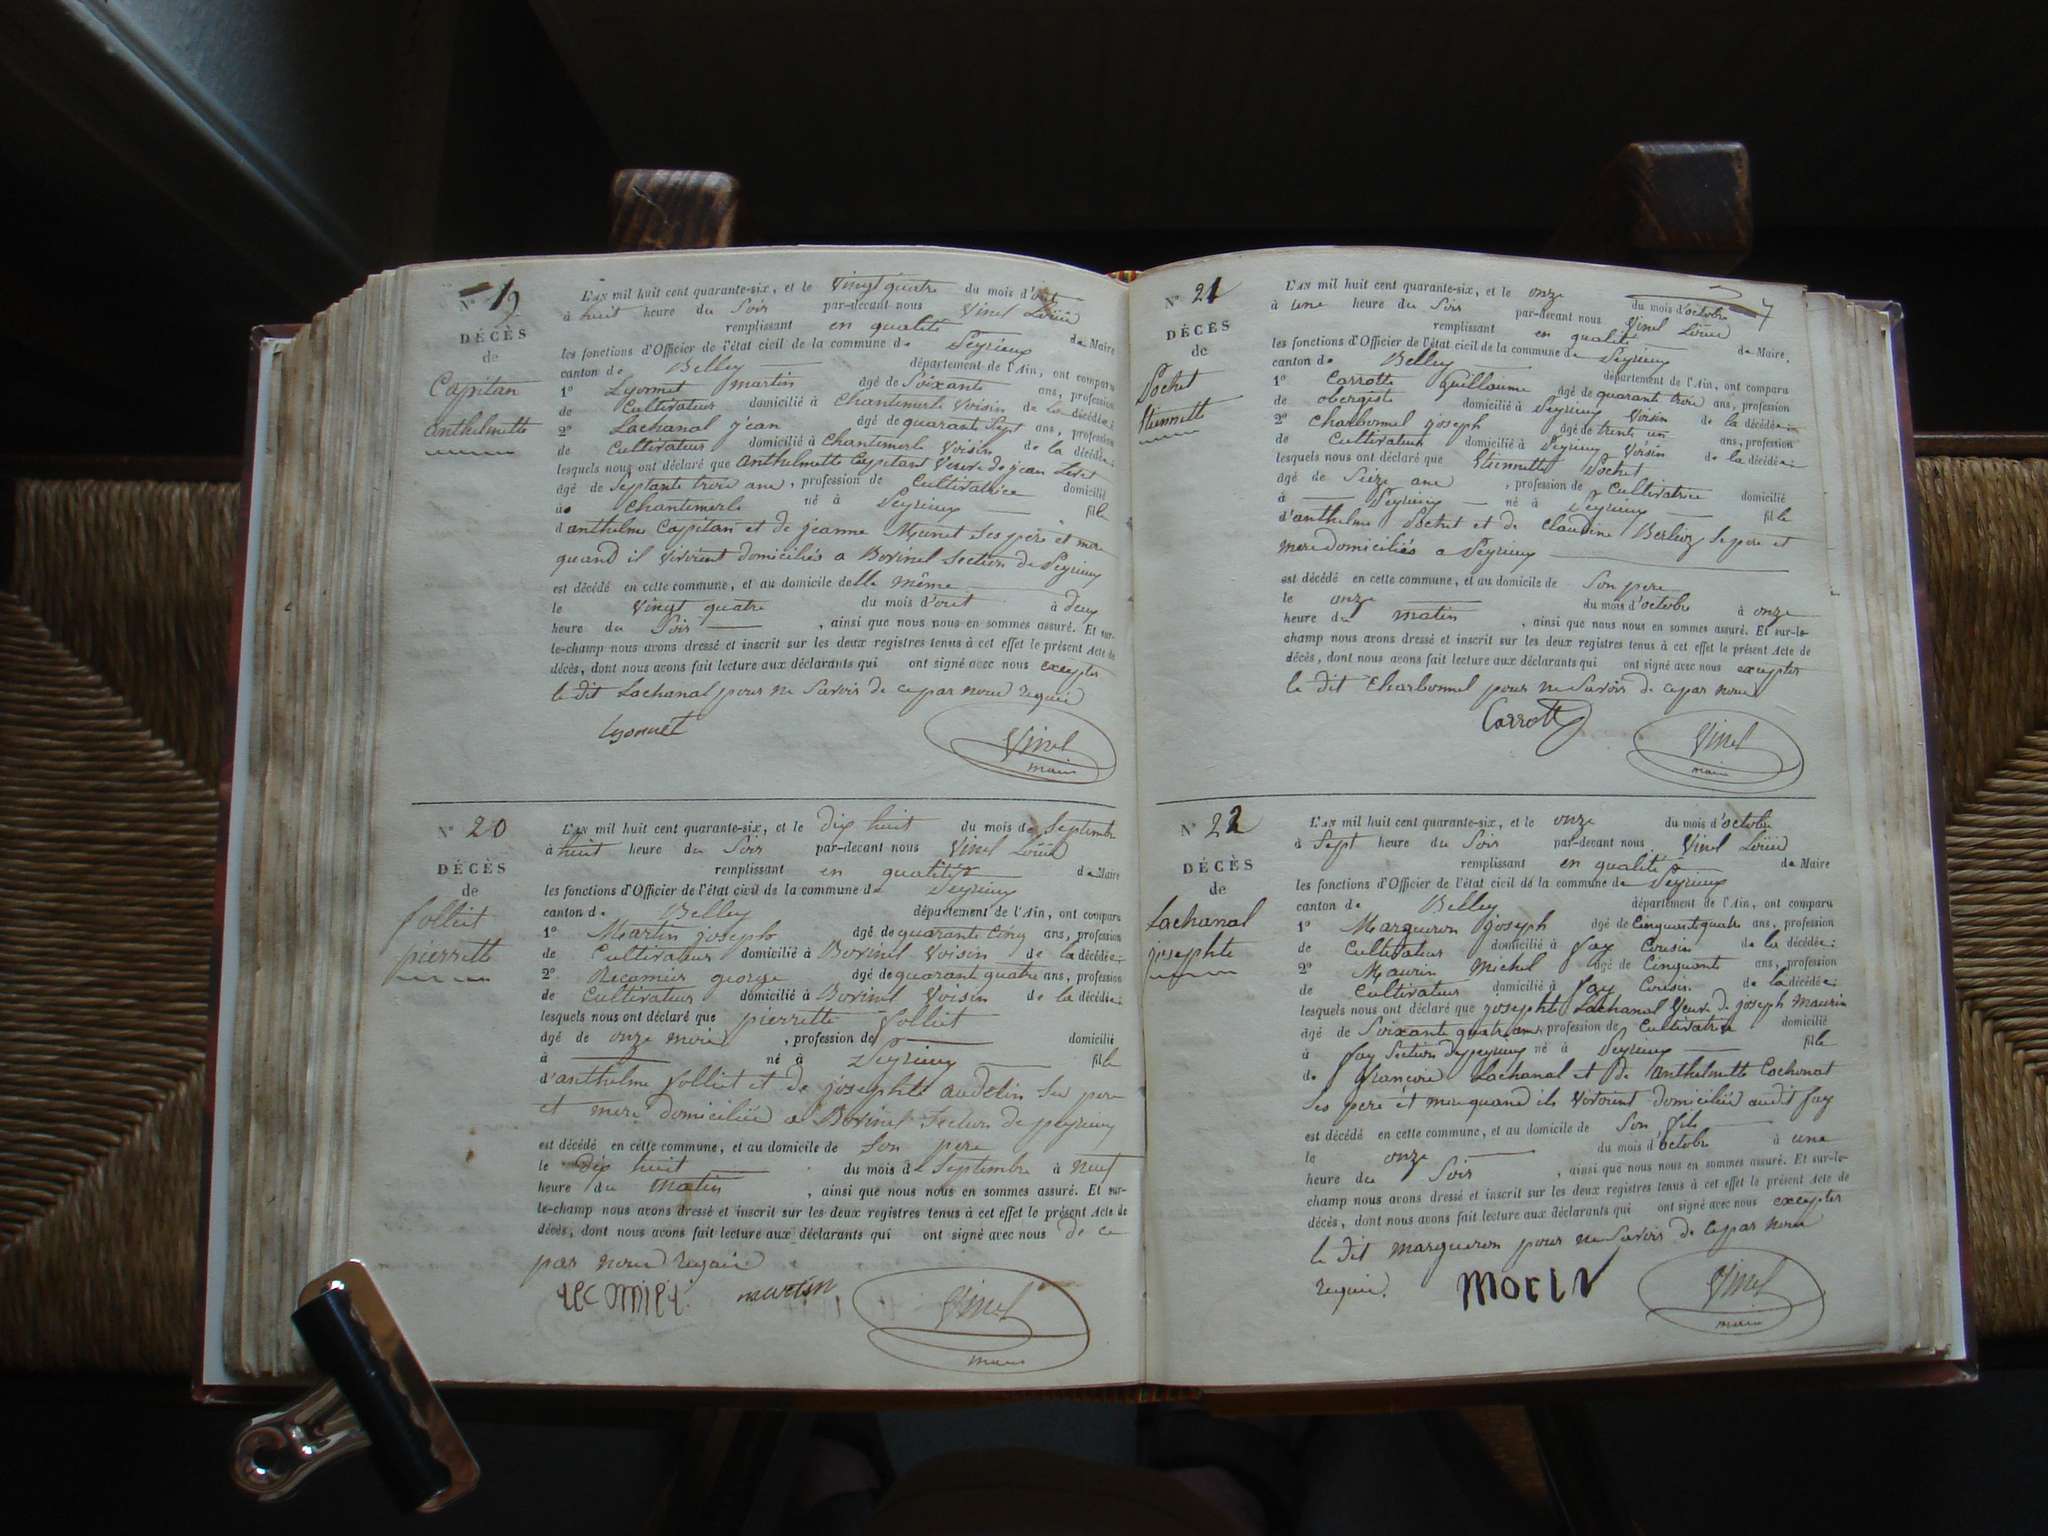 N° 19
DÉCÈS
de
Capitan
anthelmette
L'AN mil huit cent quarante-six, et le vingt quatre du mois d'out
à huit heure du Soir par-devant nous Vinel Loüis
remplissant en qualité de Maire
les fonctions d'Officier de l'état civil de la commune de Peyrieux
canton de Belley département de l'Ain, ont comparu
1° Lyonnet martin âgé de Soixante ans, profession
de Cultivateur domicilié à Chantemerle Voisin de la décédée;
2° Lachanal jean âgé de quarant Sept ans, profession
de Cultivateur domicilié à Chantemerle Voisin de la décédée;
lesquels nous ont déclaré que anthelmette Capitant Veuve de jean
âgé de Septante trois ans, profession de Cultivatrice domicilié
à Chantemerle né à Peyrieux fille
d'anthelme Capitan et de jeanne Munet Ses pere et mere
quand il vivoient domiciliés a Bovinel Section de Peyrieux
est décédé en cette commune, et au domicile delle même
le vingt quatre du mois d'out à deux
heure du Soir, ainsi que nous nous en sommes assuré. Et sur-
le-champ nous avons dressé et inscrit sur les deux registres tenus à cet effet le présent Acte de
décès, dont nous avons fait lecture aux déclarants qui ont signé avec nous excepter
le dit Lachanal pour ne Savoir de ce par nous requis
Lyonnet
Vinel
maire
N° 20
DÉCÈS
de
folliet
pierrette
L'AN mil huit cent quarante-six, et le dix huit du mois de Septembre
à huit heure du Soir par-devant nous Vinel Loüis
remplissant en qualité de Maire
les fonctions d'Officier de l'état civil de la commune de Peyrieux
canton de Belley département de l'Ain, ont comparu
1° Martin joseph âgé de quarante Cinq ans, profession
de Cultivateur domicilié à Bovinel Voisin de la décédée;
2° Recamier george âgé de quarant quatre ans, profession
de Cultivateur domicilié à Bovinel Voisin de la décédée;
lesquels nous ont déclaré que pierrette folliet
âgé de onze mois, profession de domicilié
à né à Peyrieux fille
d'anthelme folliet et de josephte audelin Ses pere
et mere domiciliés a Bovinel Section de peyrieux
est décédé en cette commune, et au domicile de Son pere
le dix huit du mois de Septembre à neuf
heure du matin, ainsi que nous nous en sommes assuré. Et sur-
le-champ nous avons dressé et inscrit sur les deux registres tenus à cet effet le présent Acte de
décès, dont nous avons fait lecture aux déclarants qui ont signé avec nous de ce
par nous requis
recamier martin
Vinel
maire
N° 21
DÉCÈS
de
Pochet
Etiennette
L'AN mil huit cent quarante-six, et le onze du mois d'octobre
à une heure du Soir par-devant nous Vinel Loüis
remplissant en qualité de Maire.
les fonctions d'Officier de l'état civil de la commune de Peyrieux
canton de Belley département de l'Ain, ont comparu
1° Carrotte Guillaume âgé de quarant trois ans, profession
de obergiste domicilié à Peyrieux Voisin de la décédée;
2° Charbonnel joseph âgé de trente un ans, profession
de Cultivateur domicilié à Peyrieux Voisin de la décédée;
lesquels nous ont déclaré que Etiennette Pochet
âgé de Seize ans, profession de Cultivatrice domicilié
à Peyrieux né à Peyrieux fille
d'anthelme Pochet et de Claudine Berlioz Se pere et
mere domiciliés a Peyrieux
est décédé en cette commune, et au domicile de Son pere
le onze du mois d'octobre à onze
heure du matin, ainsi que nous nous en sommes assuré. Et sur-le-
champ nous avons dressé et inscrit sur les deux registres tenus à cet effet le présent Acte de
décès, dont nous avons fait lecture aux déclarants qui ont signé avec nous excepter
le dit Charbonnel pour ne Savoir de ce par nous
Carrotte
Vinel
maire
N° 22
DÉCÈS
de
Lachanal
josephte
L'AN mil huit cent quarante-six, et le onze du mois d'octobre
à Sept heure du Soir par-devant nous Vinel Loüis
remplissant en qualité de Maire
les fonctions d'Officier de l'état civil de la commune de Peyrieux
canton de Belley département de l'Ain, ont comparu
1° Marqueron joseph âgé de Cinquant quatre ans, profession
de Cultivateur domicilié à fay Cousin de la décédée;
2° Maurin Michel âgé de Cinquante ans, profession
de Cultivateur domicilié à fay Cousin de la décédée;
lesquels nous ont déclaré que josephte Lachanal Veuve de joseph Maurin
âgé de Soixante quatre ans, profession de Cultivatrice domicilié
à fay Section de peyrieux né à Peyrieux fille
de françois Lachanal et de anthelmette Cochonat
Ses pere et mere quand ils vivoient domiciliés audit fay
est décédé en cette commune, et au domicile de Son fils
le onze du mois d'octobre à une
heure du Soir, ainsi que nous nous en sommes assuré. Et sur-le-
champ nous avons dressé et inscrit sur les deux registres tenus à cet effet le présent Acte de
décès, dont nous avons fait lecture aux déclarants qui ont signé avec nous excepter
le dit marqueron pour ne Savoir de ce par nous
requis.
Morin
Vinel
maire